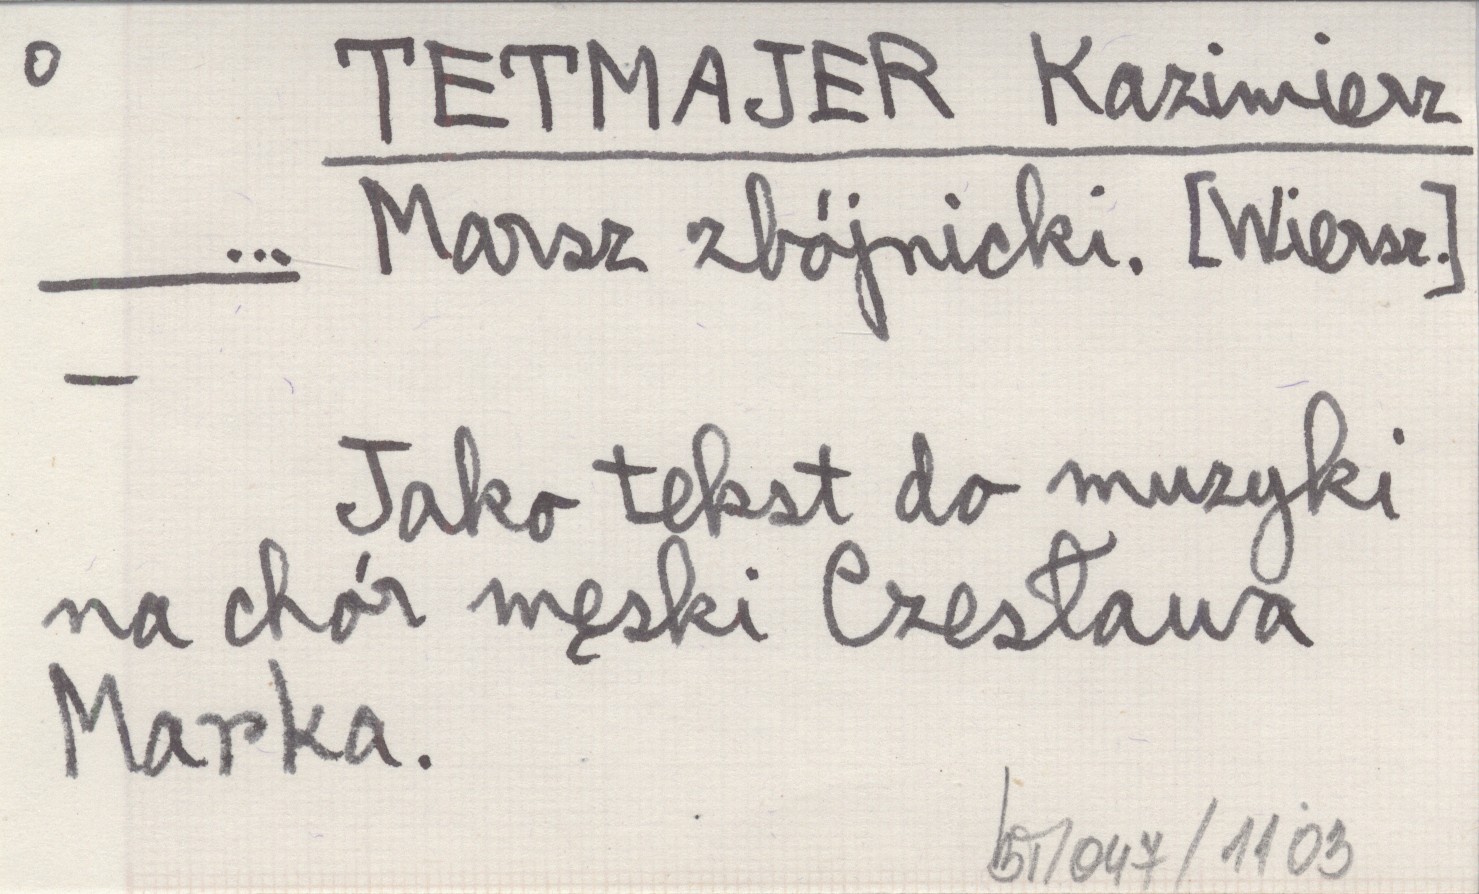 o TETMAJER Kazimierz
... Marsz zbójnicki. [Wiersz.]
—
Jako tekst do muzyki
na chór męski Czesława
Marka.
/047/1103